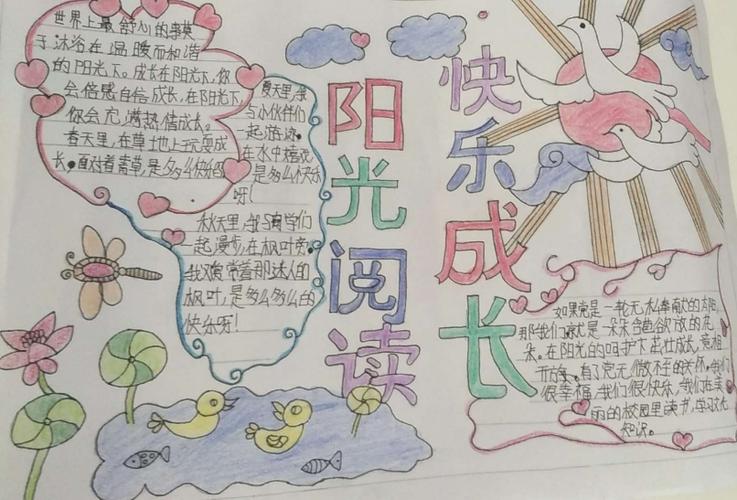 世界上最舒心的事莫
于沐浴在温暖而和谐
的阳光下。成长在阳光下,你
会倍感自信成长。在阳光下,
你会充满热情成长。
春天里,在草地上玩耍成
长。面对着青草,是多么快
呀!
夏天里,
与小伙伴们
一起游泳。
在水中嬉戏
是多么快乐
呀!
秋天里,与同学们
一起漫步,在枫叶旁。
我观赏着那迷人的
枫叶,是多么多么的
快乐呀!
阳光阅读
快乐成长
如果党是一轮无私奉献的太阳,
那我们就是一朵朵含苞欲放的花
朵。在阳光的呵护下茁壮成长,竞相
开放。有了党无微不至的关怀,我们
很幸福,我们很快乐,我们在美
丽的校园里读书,学习
知识。